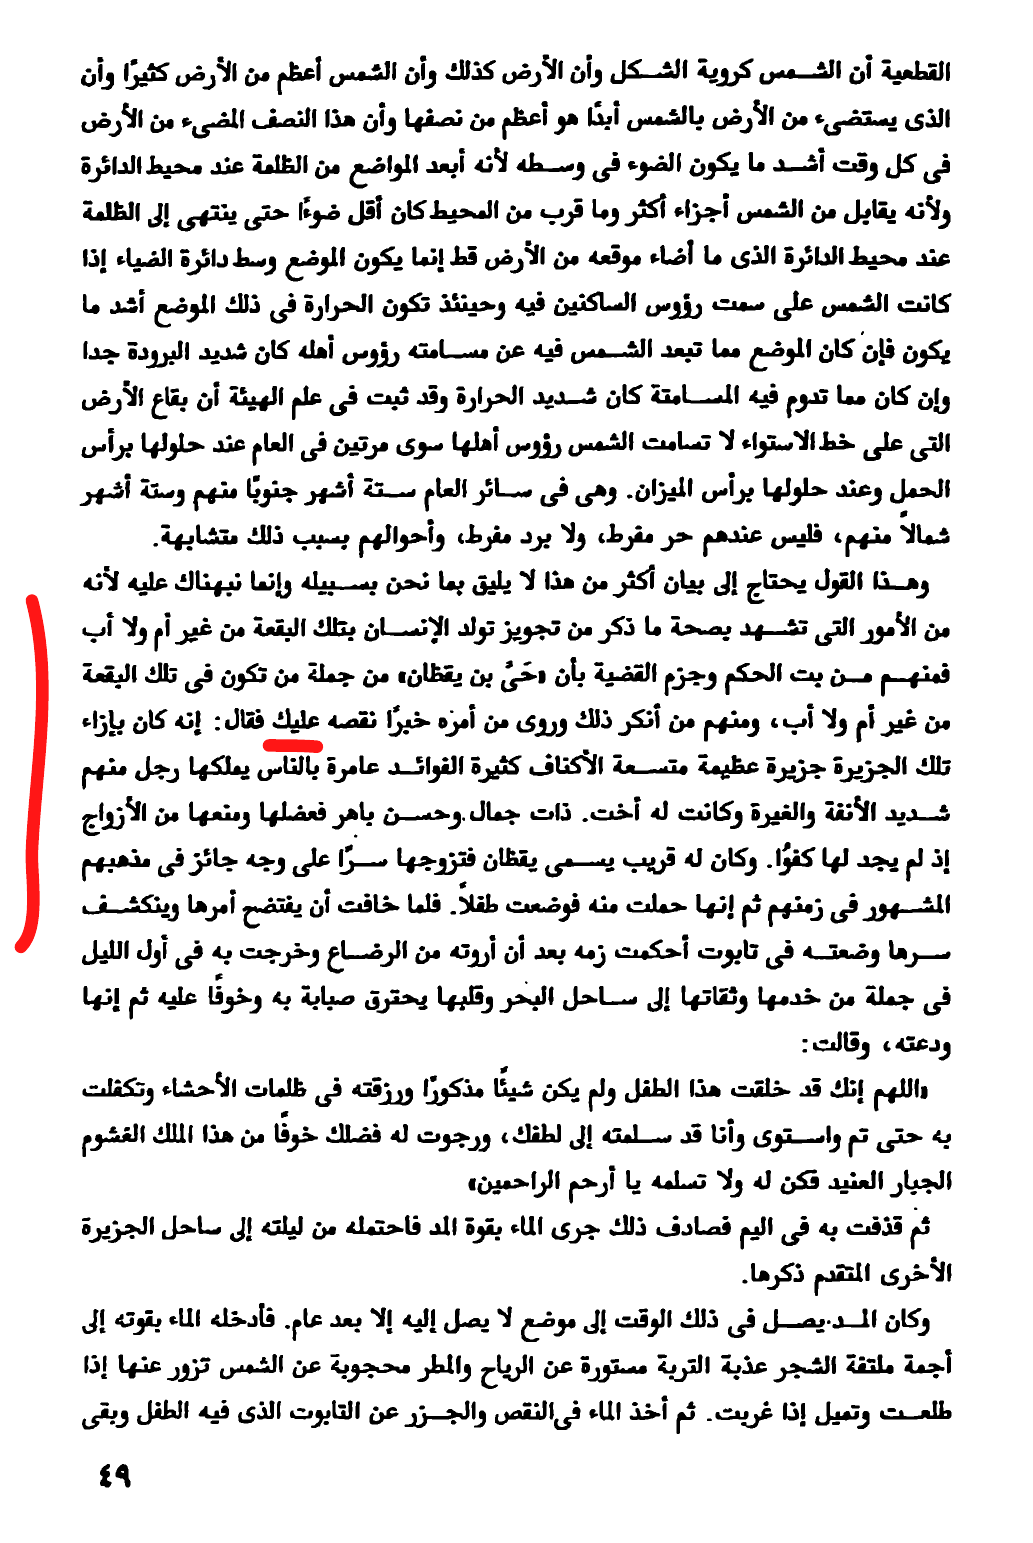 القطعية أن الشمس كروية الشكل وأن الأرض كذلك وأن الشمس أعظم من الأرض كثيرًا وأن
الذى يستضىء من الأرض بالشمس أبدًا هو أعظم من نصفها وأن هذا النصف المضىء من الأرض
فى كل وقت أشد ما يكون الضوء فى وسطه لأنه أبعد المواضع من الظلمة عند محيط الدائرة
ولأنه يقابل من الشمس أجزاء أكثر وما قرب من المحيط كان أقل ضوءًا حتى ينتهى إلى الظلمة
عند محيط الدائرة الذى ما أضاء موقعه من الأرض قط إنما يكون الموضع وسط دائرة الضياء إذا
كانت الشمس على سمت رؤوس الساكنين فيه وحينئذ تكون الحرارة فى ذلك الموضع أشد ما
يكون فإن كان الموضع مما تبعد الشمس فيه عن مسامته رؤوس أهله كان شديد البرودة جدا
وإن كان مما تدوم فيه المسامتة كان شديد الحرارة وقد ثبت فى علم الهيئة أن بقاع الأرض
التى على خط الاستواء لا تسامت الشمس رؤوس أهلها سوى مرتين فى العام عند حلولها برأس
الحمل وعند حلولها برأس الميزان. وهى فى سائر العام ستة أشهر جنوبًا منهم وستة أشهر
شمالاً منهم، فليس عندهم حر مفرط، ولا برد مفرط، وأحوالهم بسبب ذلك متشابهة.
وهذا القول يحتاج إلى بيان أكثر من هذا لا يليق بما نحن بسبيله وإنما نبهناك عليه لأنه
من الأمور التى تشهد بصحة ما ذكر من تجويز تولد الإنسان بتلك البقعة من غير أم ولا أب
فمنهم من بت الحكم وجزم القضية بأن «حَىَّ بن يقظان» من جملة من تكون فى تلك البقعة
من غير أم ولا أب، ومنهم من أنكر ذلك وروى من أمره خبرًا نقصه عليك فقال: إنه كان بإزاء
تلك الجزيرة جزيرة عظيمة متسعة الأكناف كثيرة الفوائد عامرة بالناس يملكها رجل منهم
شديد الأنفة والغيرة وكانت له أخت. ذات جمال وحسن باهر فعضلها ومنعها من الأزواج
إذ لم يجد لها كفوًا. وكان له قريب يسمى يقظان فتزوجها سرًا على وجه جائز فى مذهبهم
المشهور فى زمنهم ثم إنها حملت منه فوضعت طفلاً. فلما خافت أن يفتضح أمرها وينكشف
سرها وضعته فى تابوت أحكمت زمه بعد أن أروته من الرضاع وخرجت به فى أول الليل
فى جملة من خدمها وثقاتها إلى ساحل البحر وقلبها يحترق صبابة به وخوفًا عليه ثم إنها
ودعته، وقالت:
«اللهم إنك قد خلقت هذا الطفل ولم يكن شيئًا مذكورًا ورزقته فى ظلمات الأحشاء وتكفلت
به حتى تم واستوى وأنا قد سلمته إلى لطفك، ورجوت له فضلك خوفًا من هذا الملك الغشوم
الجبار العنيد فكن له ولا تسلمه يا أرحم الراحمين»
ثم قذفت به فى اليم فصادف ذلك جرى الماء بقوة المد فاحتمله من ليلته إلى ساحل الجزيرة
الأخرى المتقدم ذكرها.
وكان المد يصل فى ذلك الوقت إلى موضع لا يصل إليه إلا بعد عام. فأدخله الماء بقوته إلى
أجمة ملتفة الشجر عذبة التربة مستورة عن الرياح والمطر محجوبة عن الشمس تزور عنها إذا
طلعت وتميل إذا غربت. ثم أخذ الماء فى النقص والجزر عن التابوت الذى فيه الطفل وبقى
٤٩